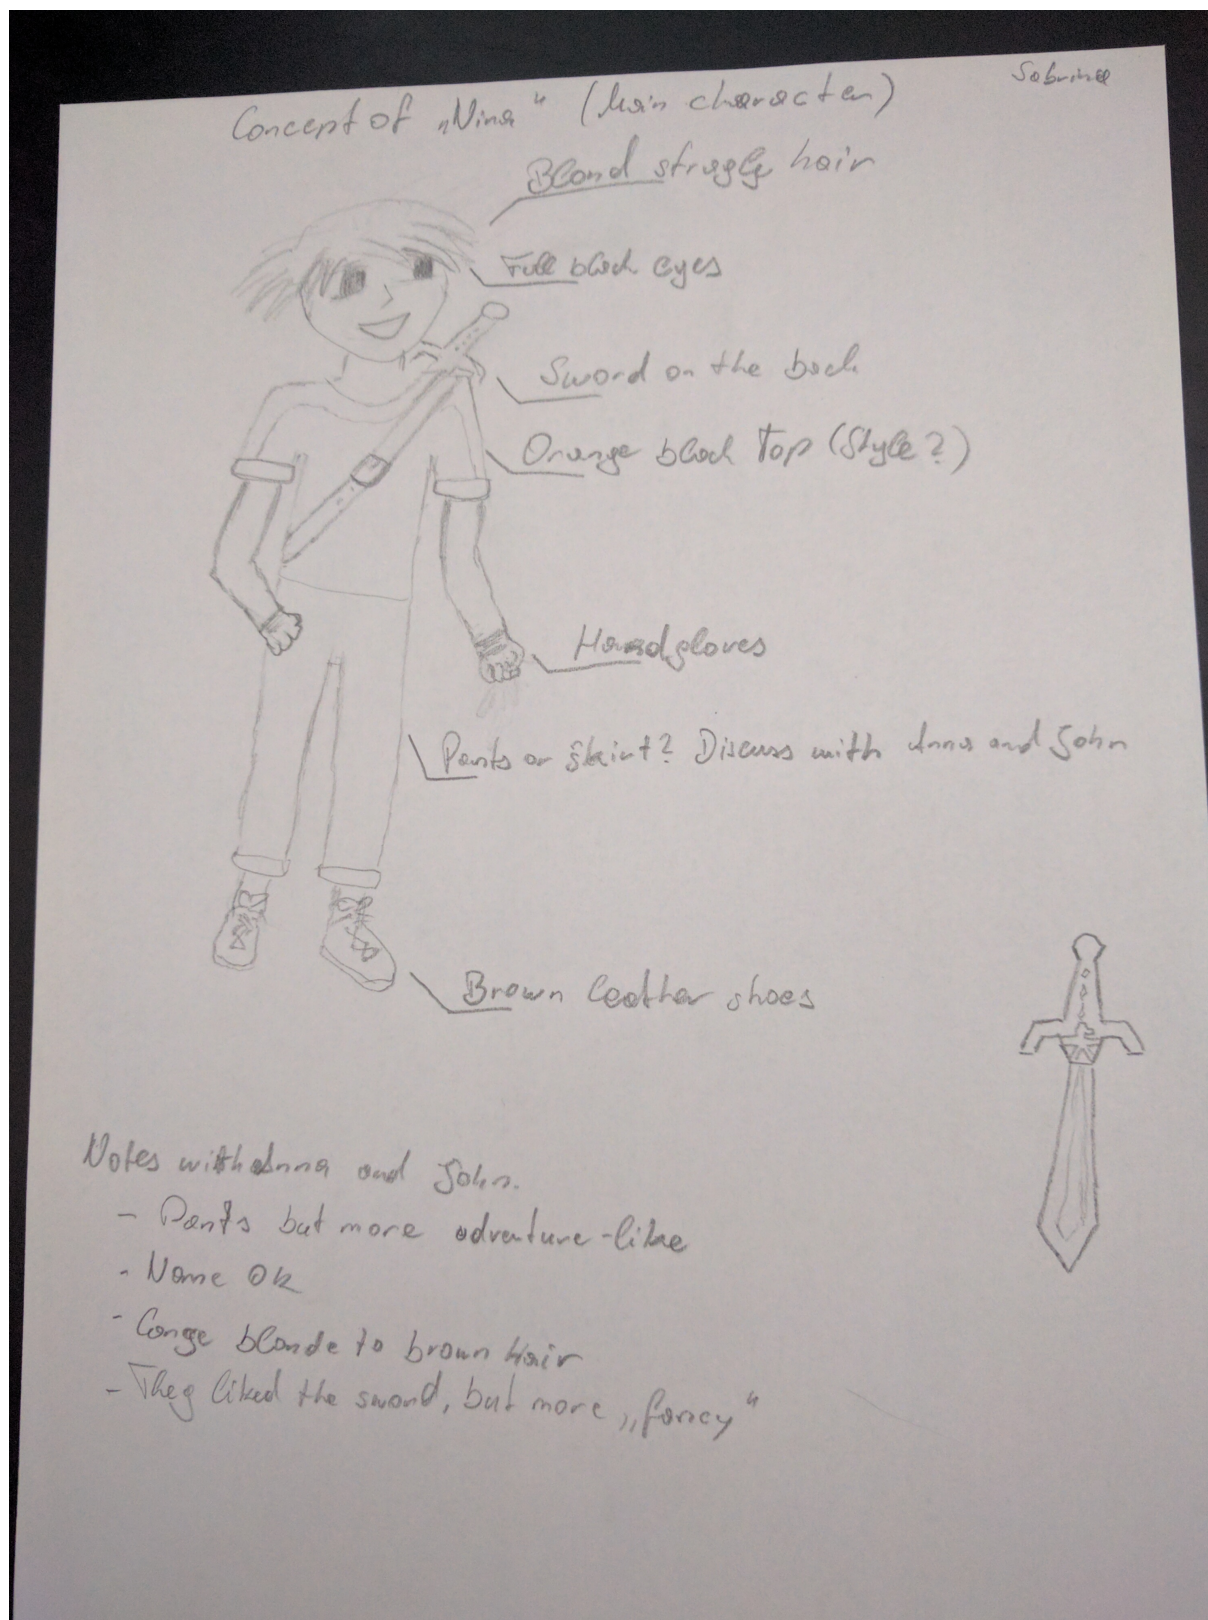 Sabrina
Concept of „Nina“ (Main character)
Blond strugly hair
Full black eyes
Sword on the back
Orange black Top (Style?)
Handgloves
Pants or skirt? Discuss with Anna and John
Brown leather shoes
Notes with Anna and John.
- Pants but more adventure-like
- Name OK
- Cange blonde to brown hair
- They liked the sword, but more „fancy“